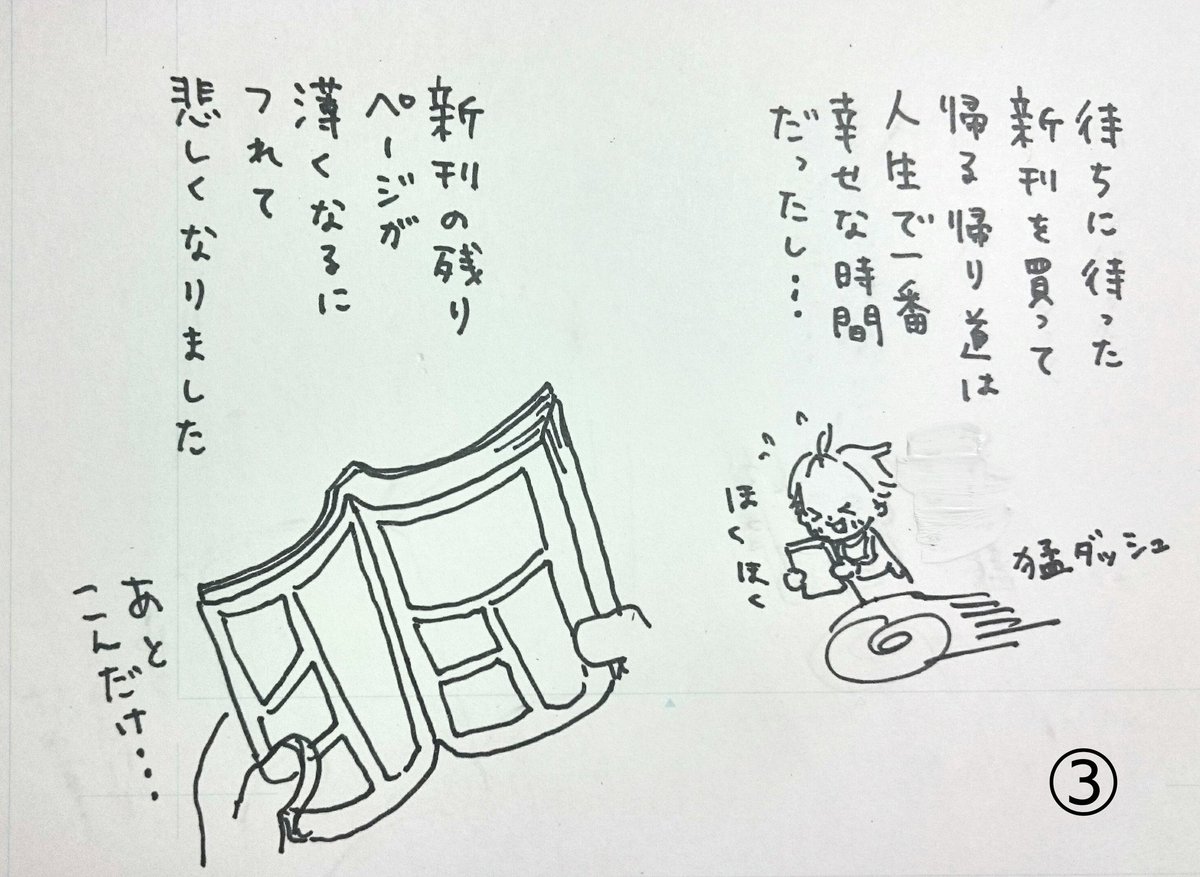 待ちに待った
新刊を買って
帰る帰り道は
人生で一番
幸せな時間
だったし…
ほくほく
猛ダッシュ
新刊の残り
ページが
薄くなるに
つれて
悲しくなりました
あと
こんだけ…
③